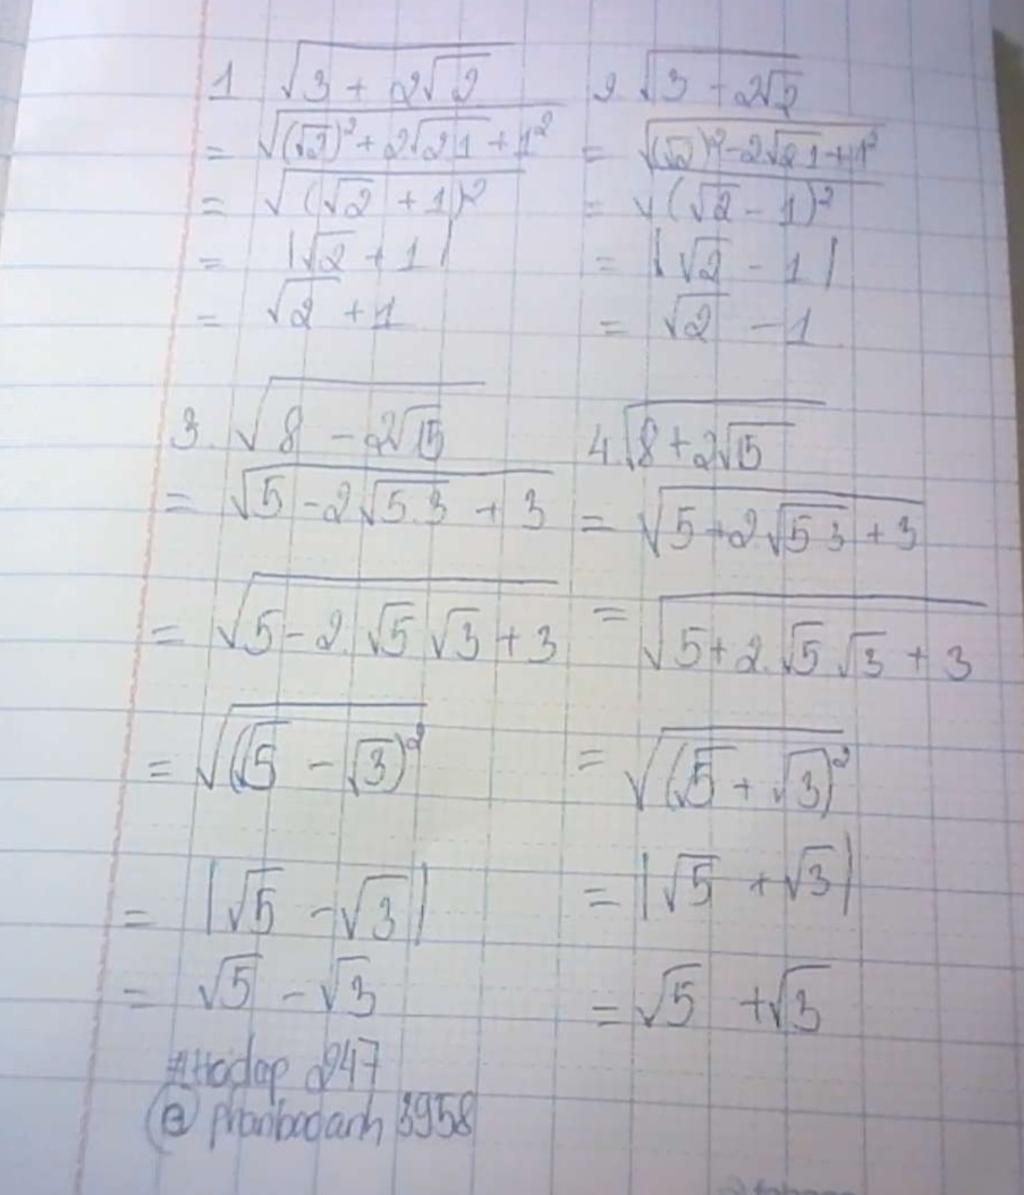 1 √(3 + 2√2)
= √((√2)² + 2√2.1 + 1²)
= √((√2 + 1)²)
= |√2 + 1|
= √2 + 1
2 √(3 - 2√2)
= √((√2)² - 2√2.1 + 1²)
= √((√2 - 1)²)
= |√2 - 1|
= √2 - 1
3. √(8 - 2√15)
= √(5 - 2√(5.3) + 3)
= √(5 - 2.√5 √3 + 3)
= √((√5 - √3)²)
= |√5 - √3|
= √5 - √3
4. √(8 + 2√15)
= √(5 + 2.√(5.3) + 3)
= √(5 + 2.√5.√3 + 3)
= √((√5 + √3)²)
= |√5 + √3|
= √5 + √3
#Hodap 247
@phanbaoanh3958